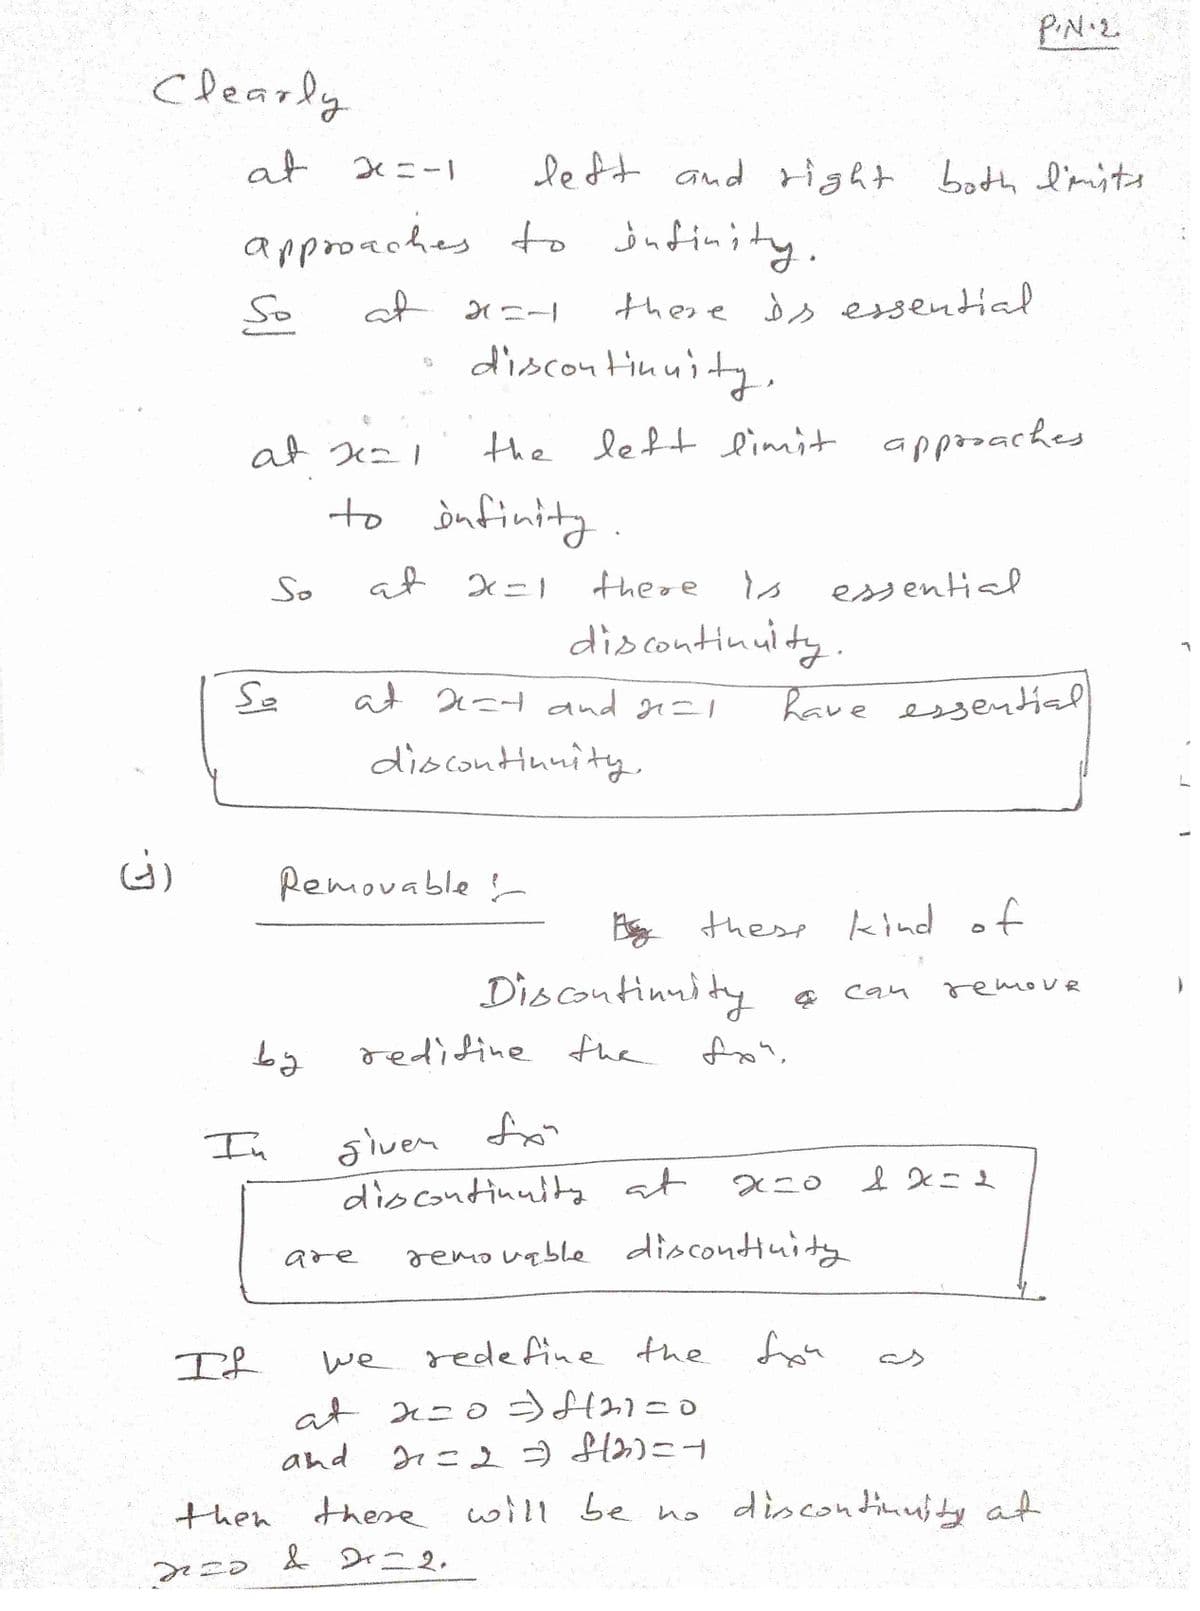 P.N.2.
Clearly
at x=-1 left and right both limits
approaches to infinity.
So at x=-1 there is essential
discontinuity.
at x=1 the left limit approaches
to infinity.
So at x=1 there is essential
discontinuity.
So at x=-1 and x=1 have essential
discontinuity.
(j) Removable :-
these kind of
Discontinuity can remove
by redifine the fxⁿ.
In given fxⁿ
discontinuity at x=0 & x=2
are removable discontinuity
If we redefine the fxⁿ as
at x=0 ⇒ f(x)=0
and x=2 ⇒ f(x)=-1
then there will be no discontinuity at
x=0 & x=2.